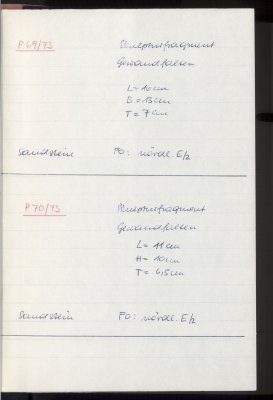 P 69/73 Skulpturfragment
Gewandfalten
L = 16 cm
B = 13 cm
T = 7 cm
Sandstein FO: nördl. E/2
P 70/73 Skulpturfragment
Gewandfalten
L = 11 cm
H = 10 cm
T = 6,5 cm
Sandstein FO: nördl. E/2